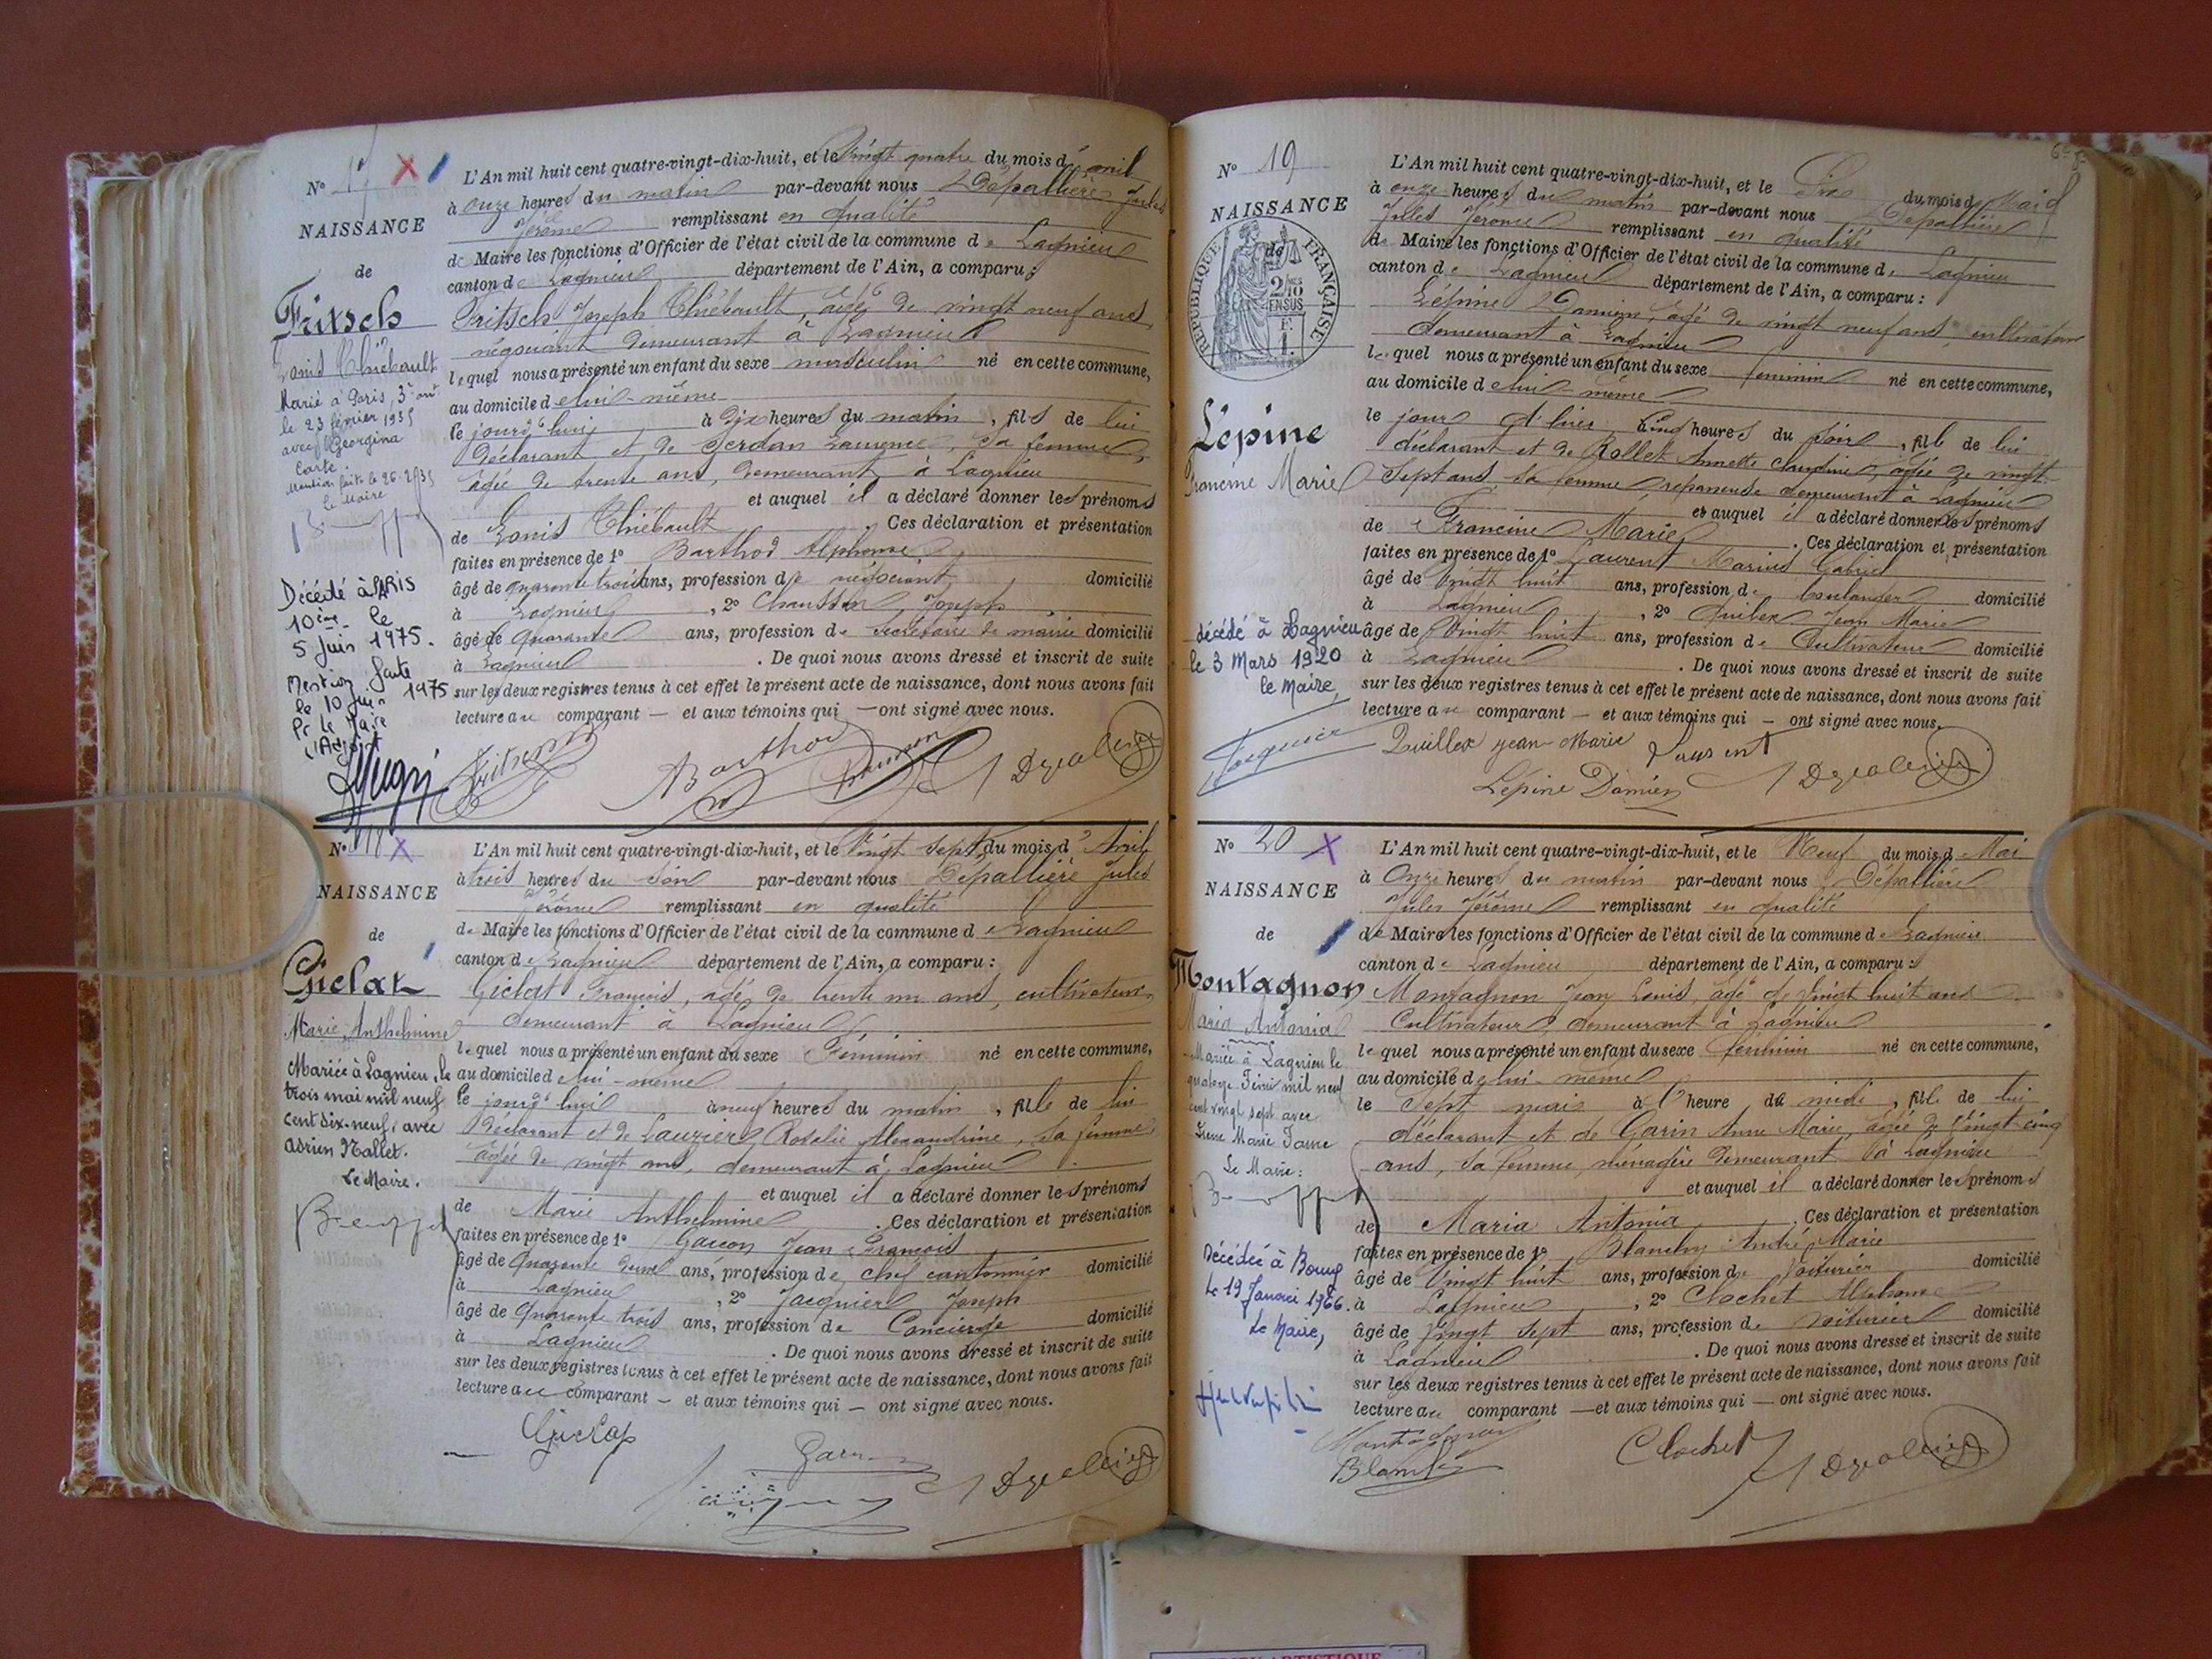 N° 17
NAISSANCE
de
Fritsch
Louis Thiébault
Marié à Paris, 3e arrt
le 23 février 1935
avec Georgina
Carte.
Mention faite le 26-2-35
Le Maire
Décédé à PARIS
10ème le
5 Juin 1975.
Mention faite
le 10 Juin 1975
Pr le Maire
l'Adjoint
L'An mil huit cent quatre-vingt-dix-huit, et le Vingt quatre du mois d'avril
à onze heures du matin par-devant nous Dépallière Jules
Jérôme remplissant en qualité
de Maire les fonctions d'Officier de l'état civil de la commune de Lagnieu
canton de Lagnieu département de l'Ain, a comparu :
Fritsch Joseph Thiébault, agé de vingt neuf ans,
négociant demeurant à Lagnieu
lequel nous a présenté un enfant du sexe masculin né en cette commune,
au domicile de lui-même
le jourd'hui, à Dix heures du matin, fils de lui
déclarant et de Jerdan Laurence, sa femme,
agée de trente ans, demeurant à Lagnieu
et auquel il a déclaré donner les prénoms
de Louis Thiébault. Ces déclaration et présentation
faites en présence de 1° Barthod Alphonse
âgé de quarante trois ans, profession de négociant, domicilié
à Lagnieu, 2° Joseph,
âgé de quarante ans, profession de Secrétaire de mairie domicilié
à Lagnieu. De quoi nous avons dressé et inscrit de suite
sur les deux registres tenus à cet effet le présent acte de naissance, dont nous avons fait
lecture au comparant — et aux témoins qui — ont signé avec nous.
Fritsch Barthod
N° 18
NAISSANCE
de
Giclat
Marie Anthelmine
Mariée à Lagnieu, le
trois mai mil neuf
cent dix-neuf, avec
Adrien Nallet.
Le Maire.
L'An mil huit cent quatre-vingt-dix-huit, et le Vingt sept du mois d'Avril
à trois heures du soir par-devant nous Dépallière Jules
Jérôme remplissant en qualité
de Maire les fonctions d'Officier de l'état civil de la commune de Lagnieu
canton de Lagnieu département de l'Ain, a comparu :
Giclat François, agé de trente un ans, cultivateur,
demeurant à Lagnieu,
lequel nous a présenté un enfant du sexe Féminin né en cette commune,
au domicile de lui-même
le jourd'hui à neuf heures du matin, fille de lui
déclarant et de Lauzier Rosalie Alexandrine, sa femme,
agée de vingt ans, demeurant à Lagnieu
et auquel il a déclaré donner les prénoms
de Marie Anthelmine. Ces déclaration et présentation
faites en présence de 1° Garcon Jean François
âgé de Quarante deux ans, profession de chef cantonnier domicilié
à Lagnieu, 2° Jacquier Joseph
âgé de Quarante trois ans, profession de Concierge domicilié
à Lagnieu. De quoi nous avons dressé et inscrit de suite
sur les deux registres tenus à cet effet le présent acte de naissance, dont nous avons fait
lecture au comparant — et aux témoins qui — ont signé avec nous.
N° 19
NAISSANCE
de
RÉPUBLIQUE FRANÇAISE
2/10
EN SUS
Lépine
Francine Marie
décédé à Lagnieu
le 3 Mars 1920
le Maire,
L'An mil huit cent quatre-vingt-dix-huit, et le Six du mois de Mai
à onze heures du matin par-devant nous Dépallière
Jules Jérome remplissant en qualité
de Maire les fonctions d'Officier de l'état civil de la commune de Lagnieu
canton de Lagnieu département de l'Ain, a comparu :
Lépine Damien, agé de vingt neuf ans, cultivateur
demeurant à Lagnieu
lequel nous a présenté un enfant du sexe feminin né en cette commune,
au domicile de lui-même
le jour d'hier à cinq heures du soir, fille de lui
déclarant et de Rollet Annette Claudine, agée de vingt
sept ans, sa femme, repasseuse demeurant à Lagnieu
et auquel il a déclaré donner les prénoms
de Francine Marie. Ces déclaration et présentation
faites en présence de 1° Laurent Marius Gabriel
âgé de Vingt huit ans, profession de boulanger domicilié
à Lagnieu, 2° Quillex Jean Marie
âgé de Vingt huit ans, profession de Cultivateur domicilié
à Lagnieu. De quoi nous avons dressé et inscrit de suite
sur les deux registres tenus à cet effet le présent acte de naissance, dont nous avons fait
lecture au comparant — et aux témoins qui — ont signé avec nous.
Quillex jean-Marie Laurent
Lépine Damien
N° 20
NAISSANCE
de
Montagnon
Maria Antonia
Mariée à Lagnieu le
mil neuf
cent vingt sept avec
Le Maire :
Décédée à Bourg
le 19 Janvier 1966.
Le Maire,
L'An mil huit cent quatre-vingt-dix-huit, et le Neuf du mois de Mai
à Onze heures du matin par-devant nous Dépallière
Jules Jérôme remplissant en qualité
de Maire les fonctions d'Officier de l'état civil de la commune de Lagnieu
canton de Lagnieu département de l'Ain, a comparu :
Montagnon Jean Louis, agé de Vingt huit ans
Cultivateur, demeurant à Lagnieu
lequel nous a présenté un enfant du sexe feminin né en cette commune,
au domicile de lui-même
le Sept mai à heure de midi, fille de lui
déclarant et de Garin Anne Marie, agée de Vingt cinq
ans, sa femme, ménagère demeurant à Lagnieu
et auquel il a déclaré donner les prénoms
de Maria Antonia. Ces déclaration et présentation
faites en présence de 1° Blanchy André Marie
âgé de Vingt huit ans, profession de Voiturier domicilié
à Lagnieu, 2° Clochet Alphonse
âgé de Vingt sept ans, profession de voiturier domicilié
à Lagnieu. De quoi nous avons dressé et inscrit de suite
sur les deux registres tenus à cet effet le présent acte de naissance, dont nous avons fait
lecture au comparant — et aux témoins qui — ont signé avec nous.
Montagnon Clochet